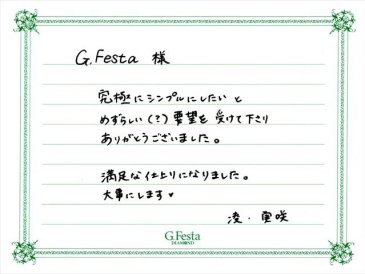 G.Festa 様
究極にシンプルにしたいと
めずらしい(?)要望を受けて下さり
ありがとうございました。
満足な仕上りになりました。
大事にします♥
凌・実咲
G.Festa
DIAMOND